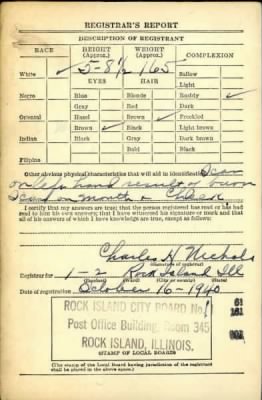 REGISTRAR'S REPORT
DESCRIPTION OF REGISTRANT
RACE HEIGHT (Approx.) WEIGHT (Approx.) COMPLEXION
White ✓ 5-8 1/2 165 Sallow
EYES HAIR Light
Negro Blue Blonde Ruddy ✓
Gray Red Dark
Oriental Hazel Brown ✓ Freckled
Brown ✓ Black Light brown
Indian Black Gray Dark brown
Bald Black
Filipino
Other obvious physical characteristics that will aid in identification
on left hand result of burn
Scar on mouth & Cheek
I certify that my answers are true; that the person registered has read or has had
read to him his own answers; that I have witnessed his signature or mark and that
all of his answers of which I have knowledge are true, except as follows:
Charles H. Nichols
(Signature of registrar)
Registrar for 1-2 Rock Island Ill
(Precinct) (Ward) (City or county) (State)
Date of registration October 16-1940
ROCK ISLAND CITY BOARD No. 1
61
161
001
Post Office Building, Room 345
ROCK ISLAND, ILLINOIS.
STAMP OF LOCAL BOARD
(The stamp of the Local Board having jurisdiction of the registrant
shall be placed in the above space.)